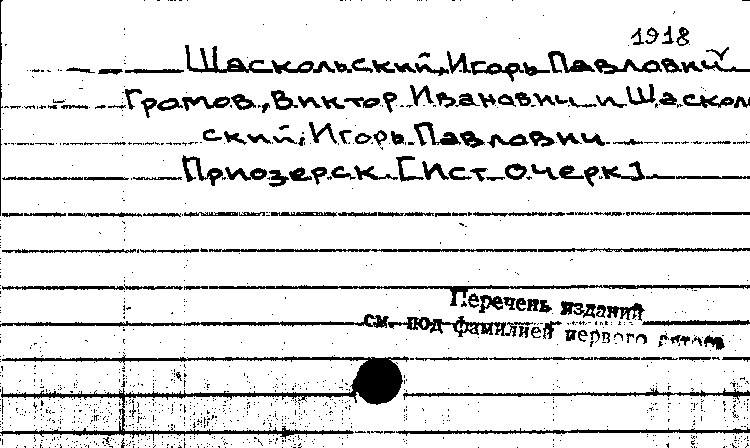 1918
Шаскольский, Игорь Павлович.
Громов, Виктор Иванович и Шасколь
ский, Игорь Павлович.
Приозерск. [Ист. очерк].
Перечень изданий
см. под фамилией первого автора